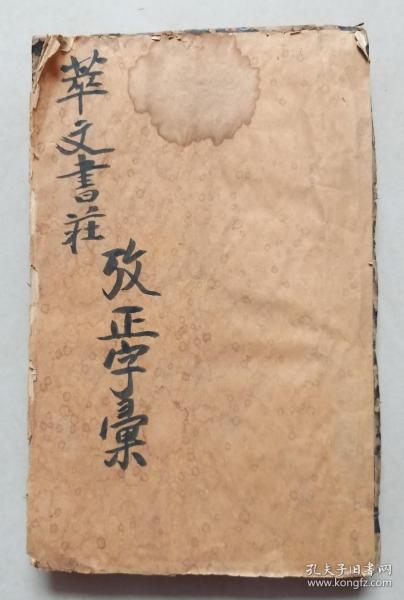 萃文書莊
攷正字彙
孔夫子旧书网
www.kongfz.com